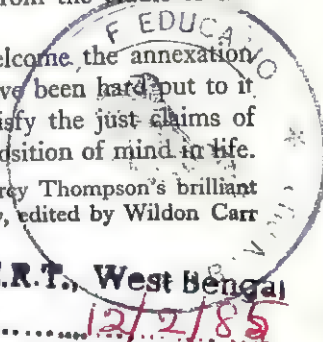 F EDUCATIO
elcome the annexation
ve been hard put to it
isfy the just claims of
osition of mind in life.
rcy Thompson's brilliant
, edited by Wildon Carr
.R.T., West Bengal
12/2/85